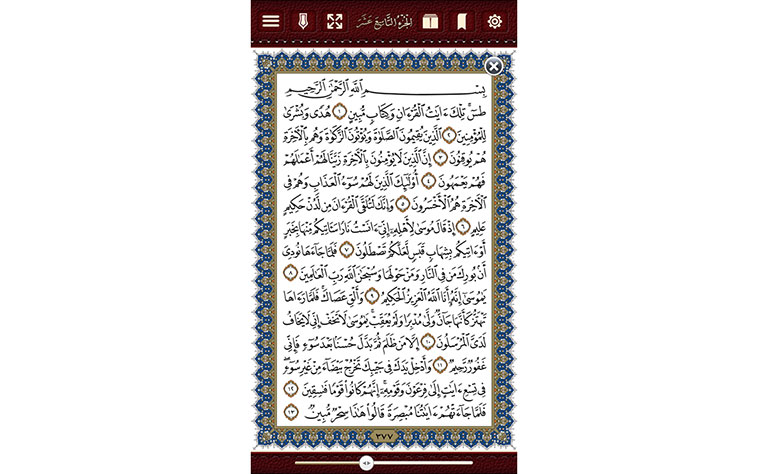 الجزء التاسع عشر
بِسْمِ اللَّهِ الرَّحْمَٰنِ الرَّحِيمِ
طسٓ تِلْكَ ءَايَٰتُ الْقُرْءَانِ وَكِتَابٍ مُّبِينٍ ١ هُدًى وَبُشْرَىٰ
لِلْمُؤْمِنِينَ ٢ الَّذِينَ يُقِيمُونَ الصَّلَوٰةَ وَيُؤْتُونَ الزَّكَوٰةَ وَهُم بِالْءَاخِرَةِ
هُمْ يُوقِنُونَ ٣ إِنَّ الَّذِينَ لَا يُؤْمِنُونَ بِالْءَاخِرَةِ زَيَّنَّا لَهُمْ أَعْمَٰلَهُمْ
فَهُمْ يَعْمَهُونَ ٤ أُو۟لَٰٓئِكَ الَّذِينَ لَهُمْ سُوٓءُ الْعَذَابِ وَهُمْ فِى
الْءَاخِرَةِ هُمُ الْأَخْسَرُونَ ٥ وَإِنَّكَ لَتُلَقَّى الْقُرْءَانَ مِن لَّدُنْ حَكِيمٍ
عَلِيمٍ ٦ إِذْ قَالَ مُوسَىٰ لِأَهْلِهِۦٓ إِنِّىٓ ءَانَسْتُ نَارًا سَـَٔاتِيكُم مِّنْهَا بِخَبَرٍ
أَوْ ءَاتِيكُم بِشِهَابٍ قَبَسٍ لَّعَلَّكُمْ تَصْطَلُونَ ٧ فَلَمَّا جَآءَهَا نُودِىَ
أَنۢ بُورِكَ مَن فِى النَّارِ وَمَنْ حَوْلَهَا وَسُبْحَٰنَ اللَّهِ رَبِّ الْعَٰلَمِينَ ٨
يَٰمُوسَىٰٓ إِنَّهُۥٓ أَنَا اللَّهُ الْعَزِيزُ الْحَكِيمُ ٩ وَأَلْقِ عَصَاكَ ۚ فَلَمَّا رَءَاهَا
تَهْتَزُّ كَأَنَّهَا جَآنٌّ وَلَّىٰ مُدْبِرًا وَلَمْ يُعَقِّبْ ۚ يَٰمُوسَىٰ لَا تَخَفْ إِنِّى لَا يَخَافُ
لَدَىَّ الْمُرْسَلُونَ ١٠ إِلَّا مَن ظَلَمَ ثُمَّ بَدَّلَ حُسْنًۢا بَعْدَ سُوٓءٍ فَإِنِّى
غَفُورٌ رَّحِيمٌ ١١ وَأَدْخِلْ يَدَكَ فِى جَيْبِكَ تَخْرُجْ بَيْضَآءَ مِنْ غَيْرِ سُوٓءٍ ۖ
فِى تِسْعِ ءَايَٰتٍ إِلَىٰ فِرْعَوْنَ وَقَوْمِهِۦٓ ۚ إِنَّهُمْ كَانُوا۟ قَوْمًا فَٰسِقِينَ ١٢
فَلَمَّا جَآءَتْهُمْ ءَايَٰتُنَا مُبْصِرَةً قَالُوا۟ هَٰذَا سِحْرٌ مُّبِينٌ ١٣
٣٧٧